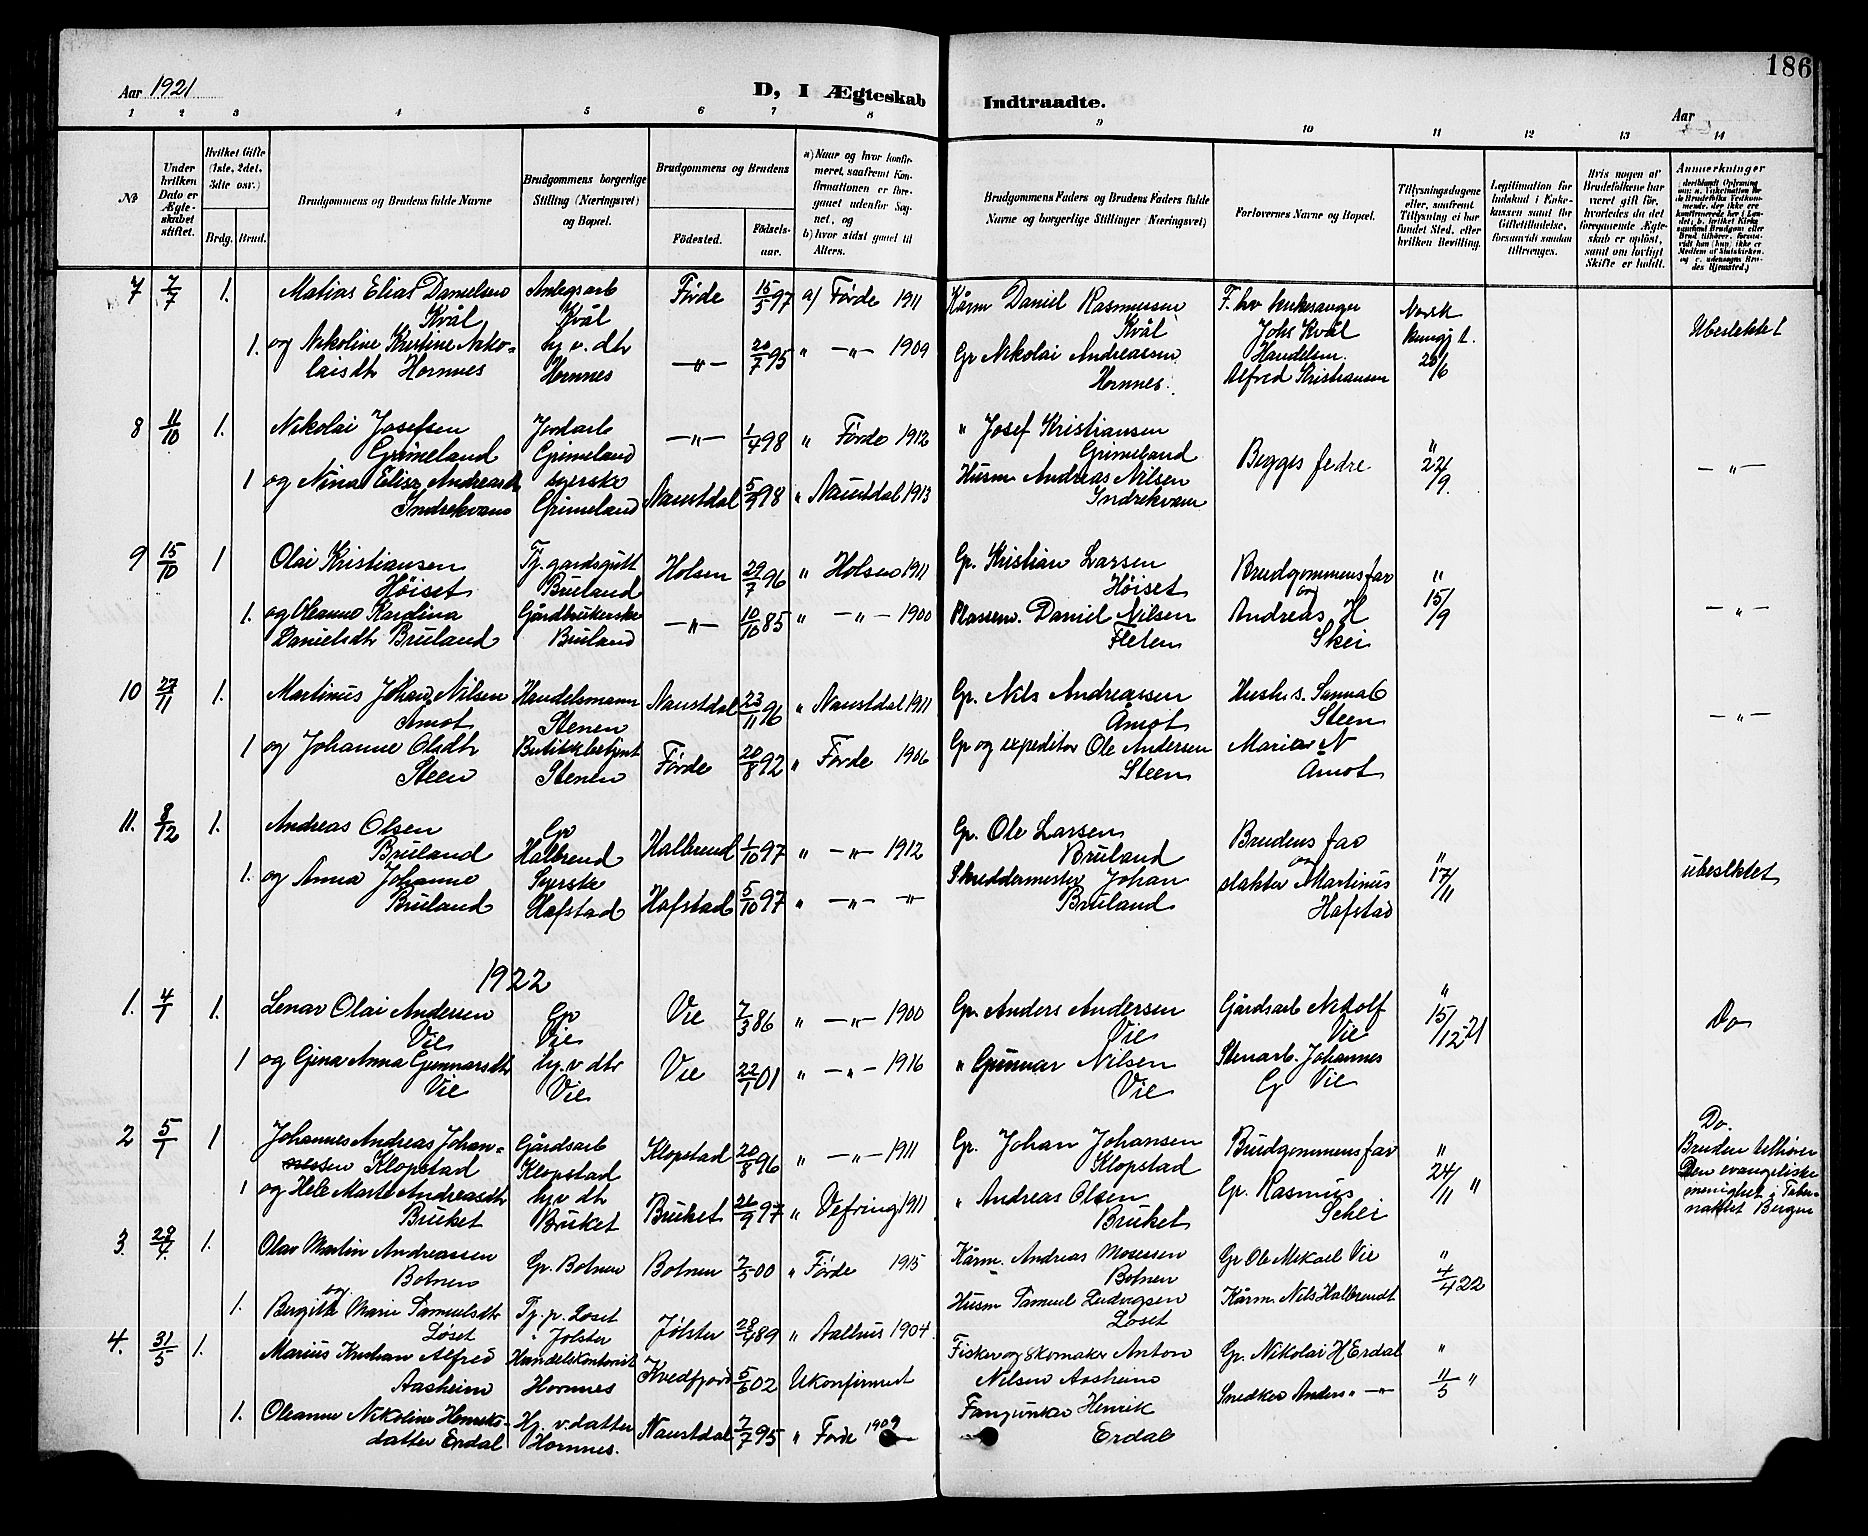 186
Aar 1921
D, I Ægteskab Indtraadte.
Aar
1 2 3 4 5 6 7 8 9 10 11 12 13 14
No
Under hvilken Dato er Ægteskabet stiftet.
Hvilket Gifte (1ste, 2det, 3die osv.)
Brdg. Brud.
Brudgommens og Brudens fulde Navne
Brudgommens borgerlige Stilling (Næringsvei) og Bopæl.
Brudgommens og Brudens
Födested.
Födselsaar.
a) Naar og hvor konfirmeret, saafremt Konfirmationen er foregaaet udenfor Sognet, og
b) hvor sidst gaaet til Alters.
Brudgommens Faders og Brudens Faders fulde Navne og borgerlige Stillinger (Næringsvei)
Forlovernes Navne og Bopæl.
Tillysningsdagene eller, saafremt Tillysning ei har fundet Sted, efter hvilken Bevilling.
Legitimation for Indskud i Enkekassen samt for Giftetilladelse, forsaavidt saadan tiltrænges.
Hvis nogen af Brudefolkene har været gift för, hvorledes da det foregaaende Ægteskab er oplöst, samt om lovligt Skifte er holdt.
Anmærkninger
7 7/7 1. Matias Elias Danielsen Kvål
Kvål
Førde 15/5 97 a) Førde 1911
Kårm Daniel Rasmussen Kvål
Johs Kvål
Norsk
Ubeslektet
1. og Nikoline Kristine Nikolaisdtr Hornnes
hj v. dtr Hornnes
—"— 20/7 95 " —"— 1909
Gp Nikolai Andreassen Hornnes.
Handelsm. Alfred Kristiansen
28/6
8 11/10 1. Nikolai Josefsen Grimeland
Jordarb Grimeland
—"— 1/4 98 " Førde 1912
" Josef Kristiansen Grimeland
Begges fedre
" 22/9.
—"—
1 og Nina Elise Andreasdtr Indrekvam
syerske Grimeland
Naustdal 5/9 98 " Naustdal 1913
Husm Andreas Nilsen Indrekvam
9 15/10 1 Olai Kristiansen Høiset
Tj. gardsgutt Bruland
Holsen 29/7 96 " Holsen 1911
Gp. Kristian Larsen Høiset
Brudgommens far og
" 15/9
—"—
1. og Oleanne Karolina Danielsdtr Bruland
Gårdbrukerske Bruland
—"— 10/10 85 " —"— 1900
Plassem. Daniel Nilsen Fleten
Andreas H Skei
10 27/11 1. Martinus Johan Nilsen Åmot
Handelsmann Stenen
Naustdal 23/11 96 " Naustdal 1911
Gp. Nils Andreassen Åmot
Sanna C Steen
—"—
1 og Johanne Olsdtr Steen
Butikkbetjent Stenen
Førde 20/8 92 " Førde 1906
Gp og expeditør Ole Andersen Steen
Marie N Åmot
11. 8/12 1. Andreas Olsen Bruland
Gp Halbrend
Halbrend 1/10 97 " —"— 1912
Gp. Ole Larsen Bruland
Brudens far og
" 17/11
ubeslktet
1. og Anna Johanne Bruland
Syerske Hafstad
Hafstad 5/10 97 " —"— —"—
Skreddermester Johan Bruland
slakter Martinus Hafstad
1922
1. 4/1 1. Lenar Olai Andersen Vie
Gp Vie
Vie 7/3 86 " —"— 1900
Gp. Anders Andersen Vie
Gårdsarb Nidolf Vie
" 15/12-21
Do
1 og Gjina Anna Gunnarsdtr Vie
hj. v dtr Vie
Vie 22/1 01 " —"— 1916
" Gunnar Nilsen Vie
Stenarb. Johannes G Vie
2 5/1 1 Johannes Andreas Johannessen Klopstad
Gårdsarb Klopstad
Klopstad 20/8 96 " —"— 1911
Gp. Johan Johansen Klopstad
Brudgommens far
" 24/11 "
Do.
Bruden tilhører Den evangeliske menighet i Tabernaklet Bergen
1 og Hele Marte Andreasdtr Bruket
hj v dtr Bruket
Bruket 26/9 97 " Vefring 1911
" Andreas Olsen Bruket
Gp. Rasmus Schei
3. 28/4. 1. Olav Martin Andreassen Botnen
Gp. Botnen
Botnen 7/5 00 " Førde 1915
Kårm. Andreas Mosessen Botnen
Gp Ole Mikael Vie
" 4/4 22
og
1. Bergith Marie Samuelsdtr Løset
Tj. p. Løset i Jølster
Jølster 28/4 89 " Aalhus 1904.
Husm Samuel Ludvigsen Løset
Kårm. Nils Halbrendt
4. 31/5 1. Marius Kristian Alfred Aasheim
Handelskontorist Hornnes
Kvedfjord 5/6 02 Ukonfirmert
Fisker og skomaker Anton Nilsen Aasheim
Gp. Nikolai H Erdal
" 11/5 "
1. Oleanne Nikoline Henriksdatter Erdal
Hj. v. datter Hornnes.
Naustdal 7/7 95 " Førde 1909
Henrik Erdal
Snedker Anders " —"—